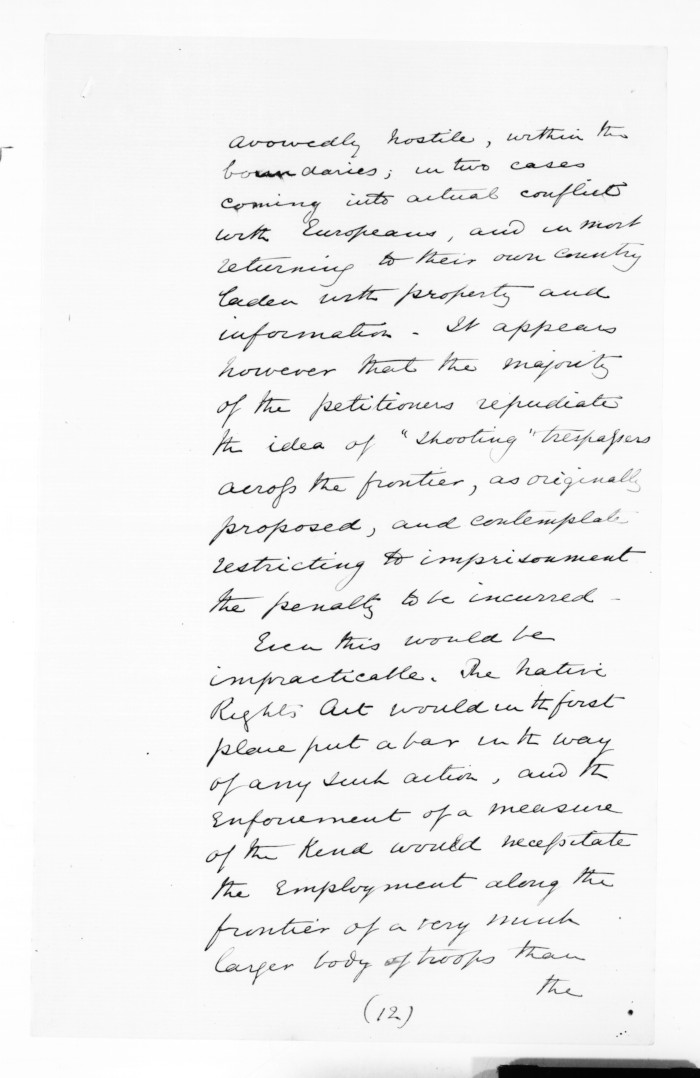 avowedly hostile, within the
boundaries; in two cases
coming into actual conflict
with Europeans, and in most
returning to their own country
laden with property and
information - It appears
however that the majority
of the petitioners repudiate
the idea of "shooting" trespassers
across the frontier, as originally
proposed, and contemplate
restricting to imprisonment
the penalty to be incurred -
Even this would be
impracticable. The Native
Rights Act would in the first
place put a bar in the way
of any such action, and the
Enforcement of a measure
of the Kind would necessitate
the Employment along the
frontier of a very much
larger body of troops than
the
(12)